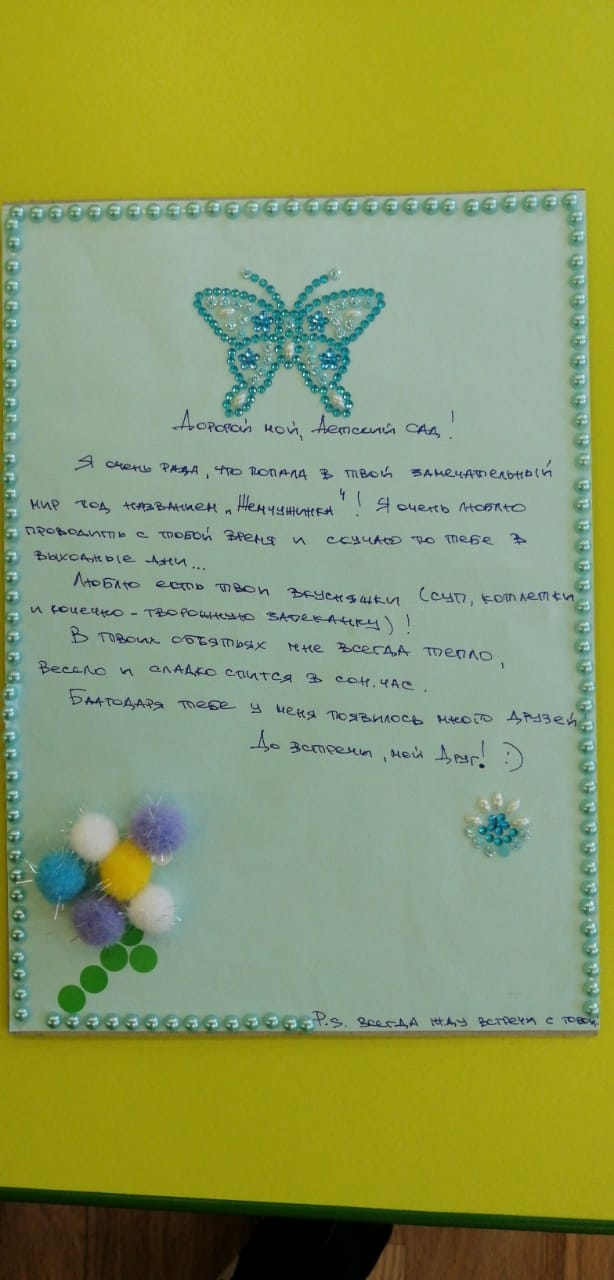 Дорогой мой, Детский сад!
Я очень рада, что попала в твой замечательный
мир под названием „Жемчужинка“! Я очень люблю
проводить с тобой время и скучаю по тебе в
выходные дни...
Люблю есть твои вкусняшки (суп, котлетки
и конечно - творожную запеканку)!
В твоих объятьях мне всегда тепло,
весело и сладко спится в сон.час.
Благодаря тебе у меня появилось много друзей
До встречи, мой Друг! :)
P.S. всегда жду встречи с тобой.